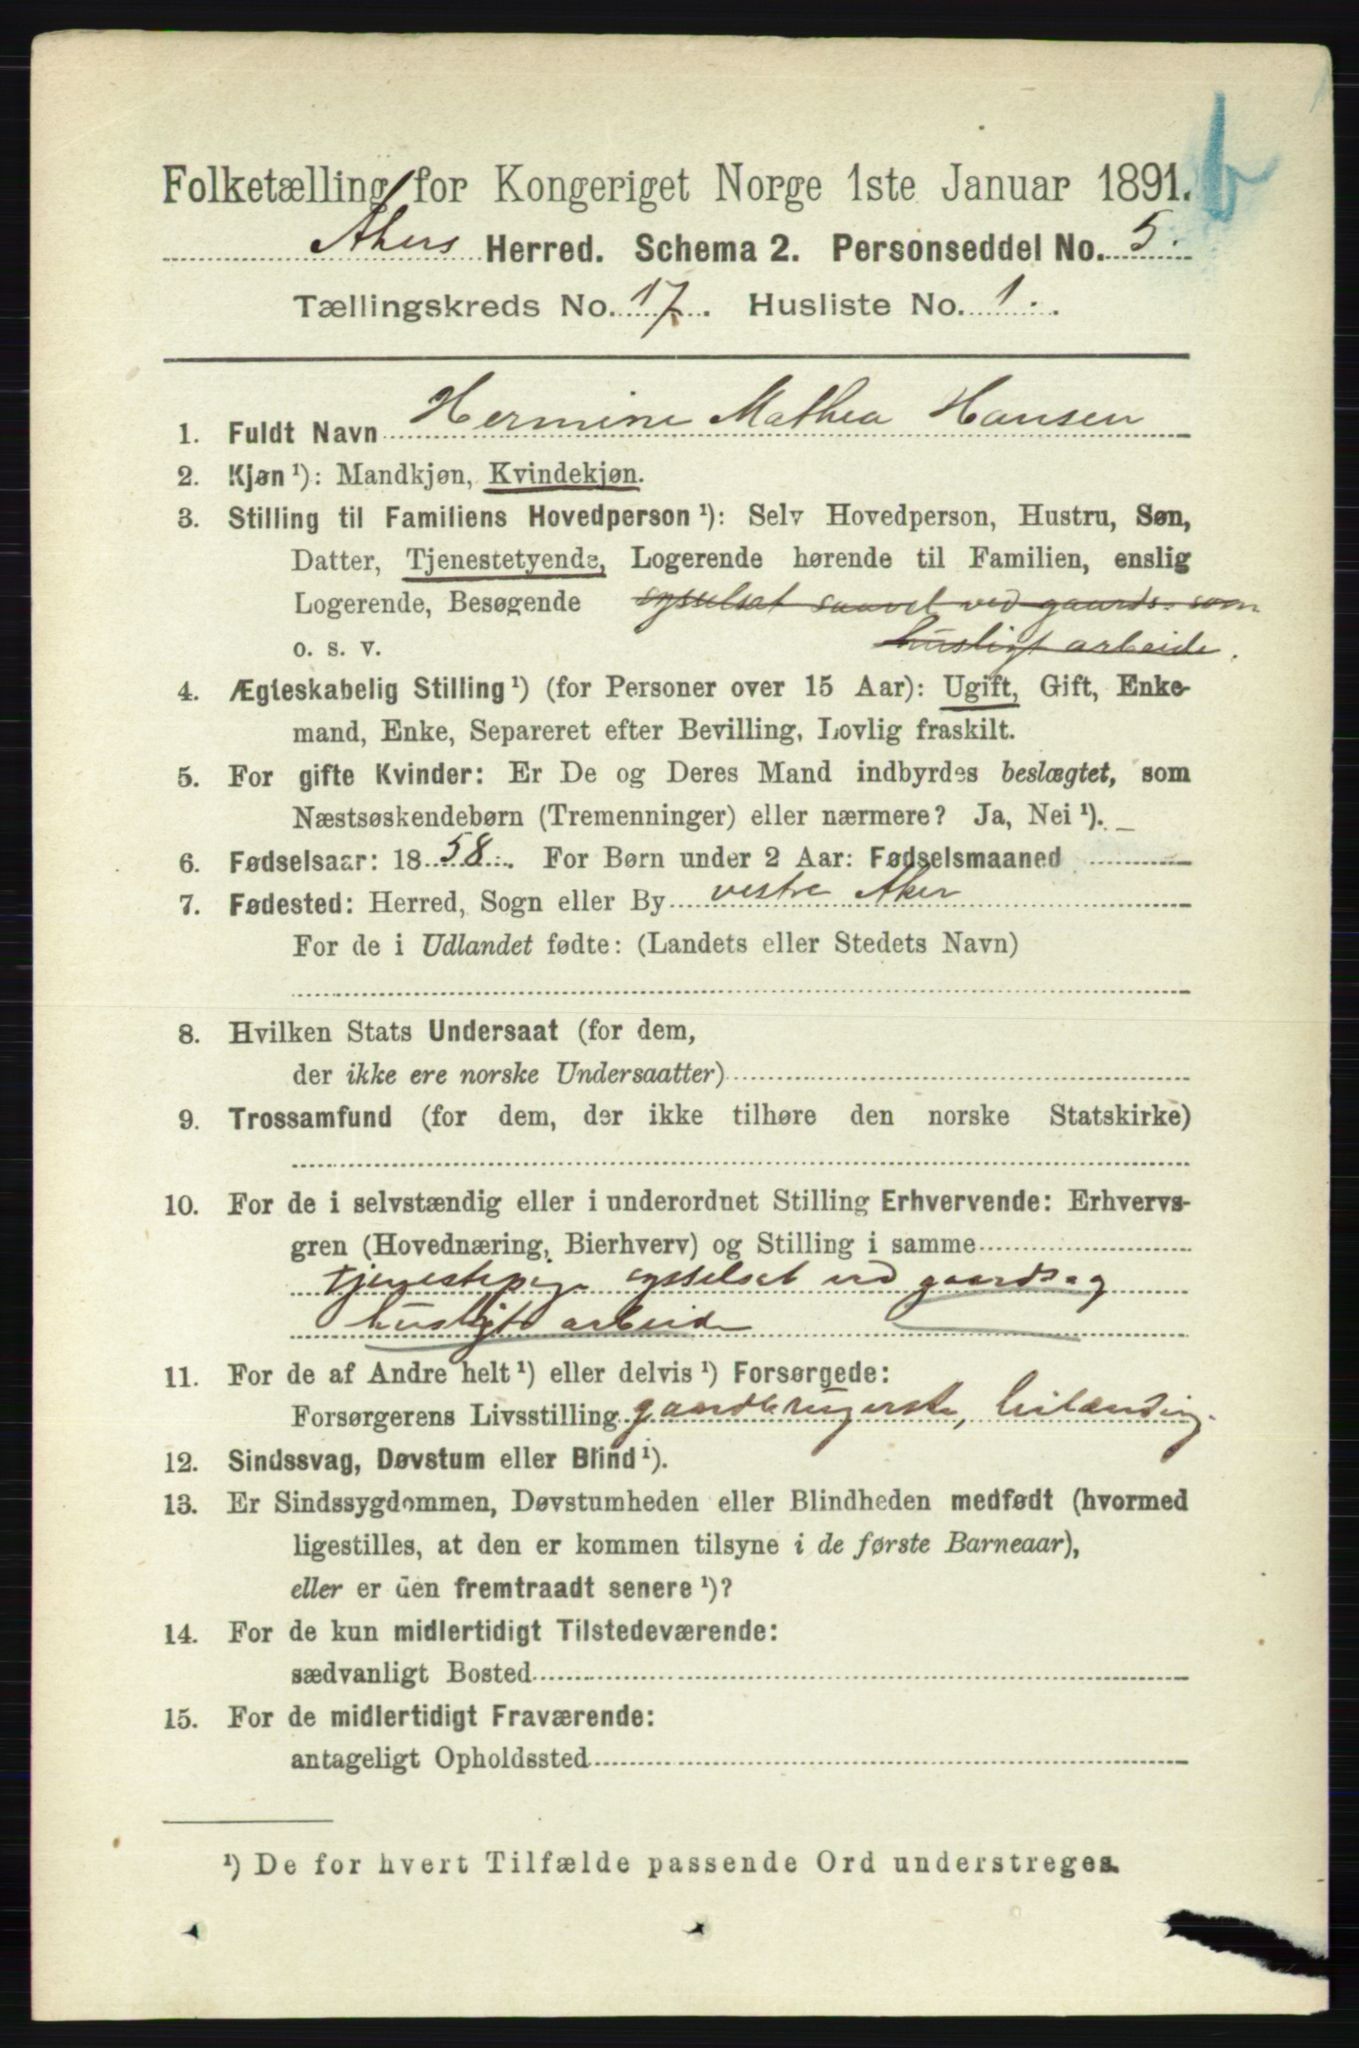 b
Folketælling for Kongeriget Norge 1ste Januar 1891.
Akers Herred. Schema 2. Personseddel No. 5.
Tællingskreds No. 17. Husliste No. 1.
1. Fuldt Navn Hermine Mathea Hansen
2. Kjøn ¹): Mandkjøn, Kvindekjøn.
3. Stilling til Familiens Hovedperson ¹): Selv Hovedperson, Hustru, Søn,
Datter, Tjenestetyende, Logerende hørende til Familien, enslig
Logerende, Besøgende sysselsat saavel ved gaards- som
o. s. v. husligt arbeide.
4. Ægteskabelig Stilling ¹) (for Personer over 15 Aar): Ugift, Gift, Enke-
mand, Enke, Separeret efter Bevilling, Lovlig fraskilt.
5. For gifte Kvinder: Er De og Deres Mand indbyrdes beslægtet, som
Næstsøskendebørn (Tremenninger) eller nærmere? Ja, Nei ¹).
6. Fødselsaar: 1858. For Børn under 2 Aar: Fødselsmaaned
7. Fødested: Herred, Sogn eller By vestre Aker
For de i Udlandet fødte: (Landets eller Stedets Navn)
8. Hvilken Stats Undersaat (for dem,
der ikke ere norske Undersaatter)
9. Trossamfund (for dem, der ikke tilhøre den norske Statskirke)
10. For de i selvstændig eller i underordnet Stilling Erhvervende: Erhvervs-
gren (Hovednæring, Bierhverv) og Stilling i samme
Tjenestepige sysselsat ved gaards og
husligt arbeide
11. For de af Andre helt ¹) eller delvis ¹) Forsørgede:
Forsørgerens Livsstilling gaardbrugerske,
12. Sindssvag, Døvstum eller Blind ¹).
13. Er Sindssygdommen, Døvstumheden eller Blindheden medfødt (hvormed
ligestilles, at den er kommen tilsyne i de første Barneaar),
eller er den fremtraadt senere ¹)?
14. For de kun midlertidigt Tilstedeværende:
sædvanligt Bosted
15. For de midlertidigt Fraværende:
antageligt Opholdssted
¹) De for hvert Tilfælde passende Ord understreges.